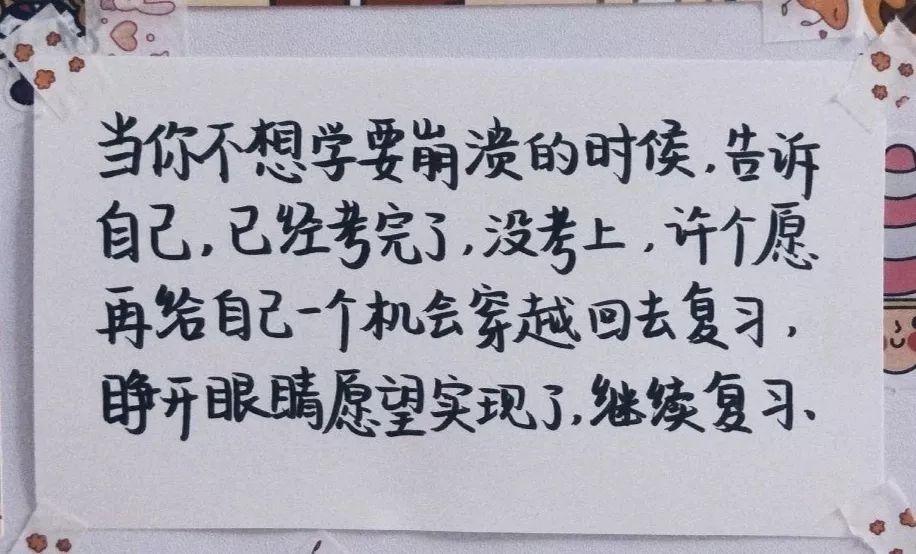 当你不想学要崩溃的时候,告诉
自己,已经考完了,没考上,许个愿
再给自己一个机会穿越回去复习,
睁开眼睛愿望实现了,继续复习、